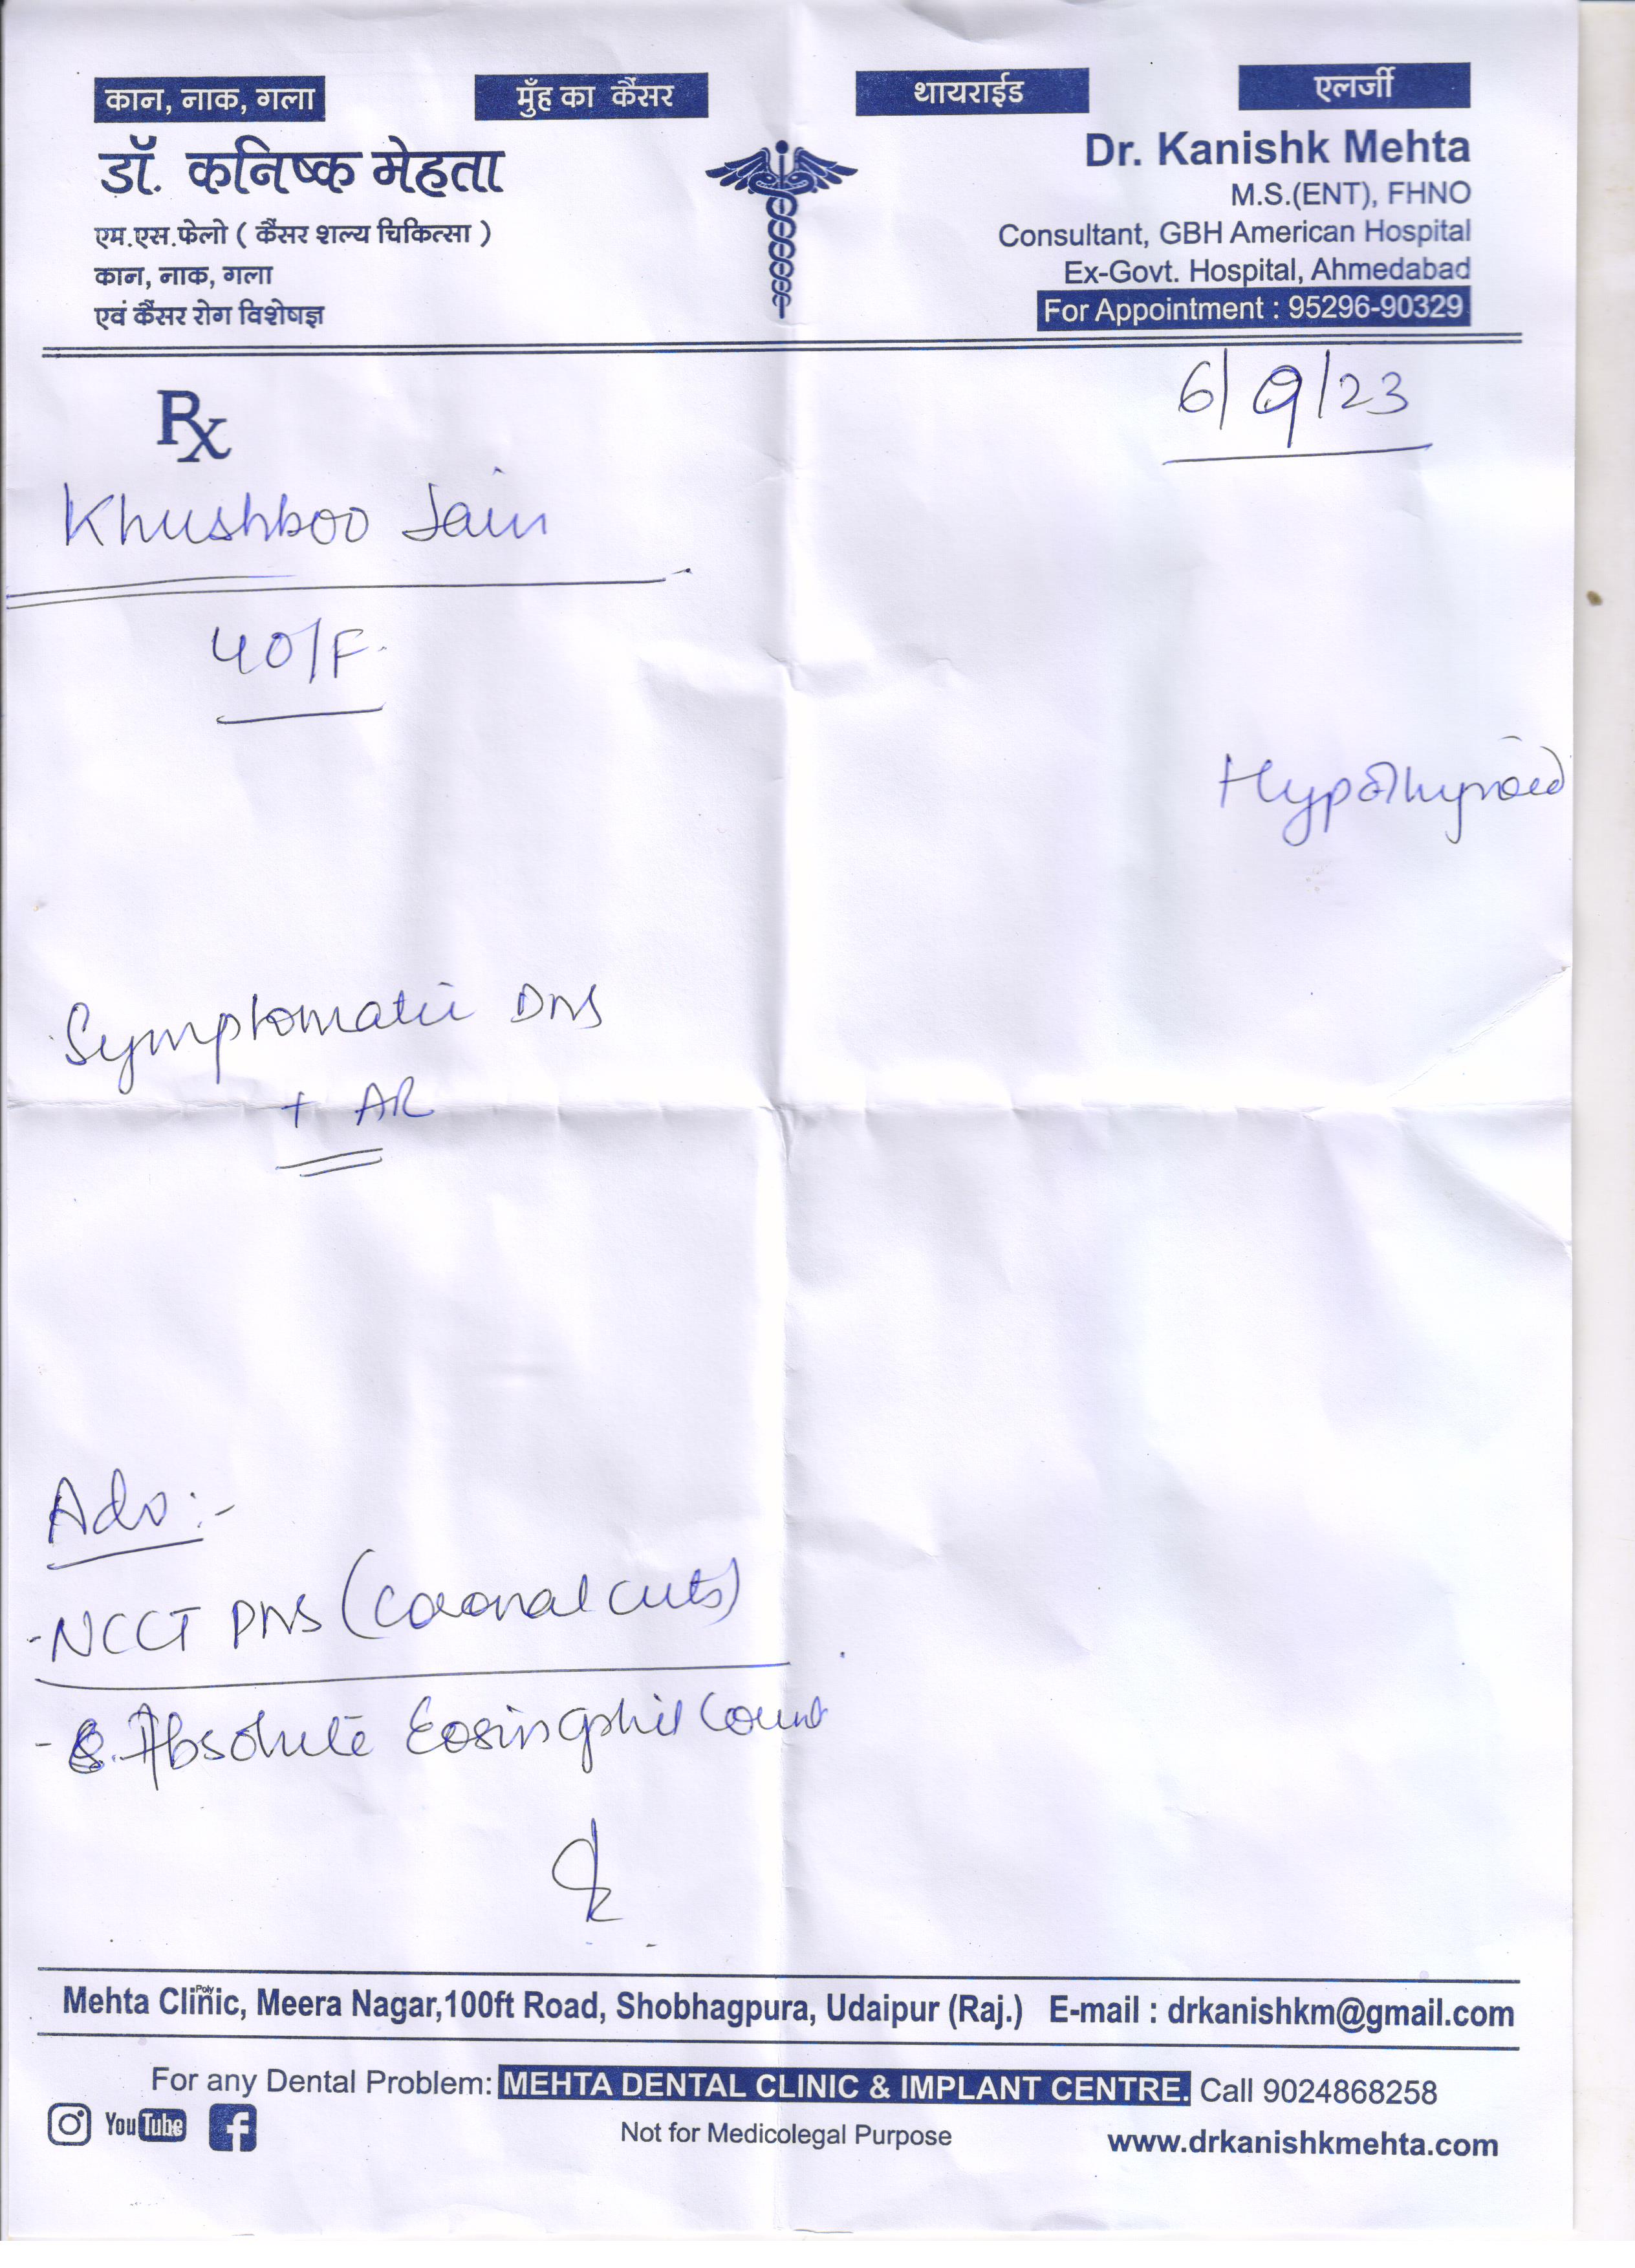 कान, नाक, गला
मुँह का कैंसर
थायराईड
एलर्जी
डॉ. कनिष्क मेहता
एम.एस.फेलो ( कैंसर शल्य चिकित्सा )
कान, नाक, गला
एवं कैंसर रोग विशेषज्ञ
Dr. Kanishk Mehta
M.S.(ENT), FHNO
Consultant, GBH American Hospital
Ex-Govt. Hospital, Ahmedabad
For Appointment : 95296-90329
Rx
6/9/23
Khushboo Jain
40/F.
Hypothyroid
Symptomatic DNS
+ AR
Adv :-
- NCCT PNS (Coronal cuts)
- S. Absolute Eosinophil Count
Mehta Poly Clinic, Meera Nagar,100ft Road, Shobhagpura, Udaipur (Raj.) E-mail : drkanishkm@gmail.com
For any Dental Problem: MEHTA DENTAL CLINIC & IMPLANT CENTRE. Call 9024868258
YouTube
Not for Medicolegal Purpose
www.drkanishkmehta.com